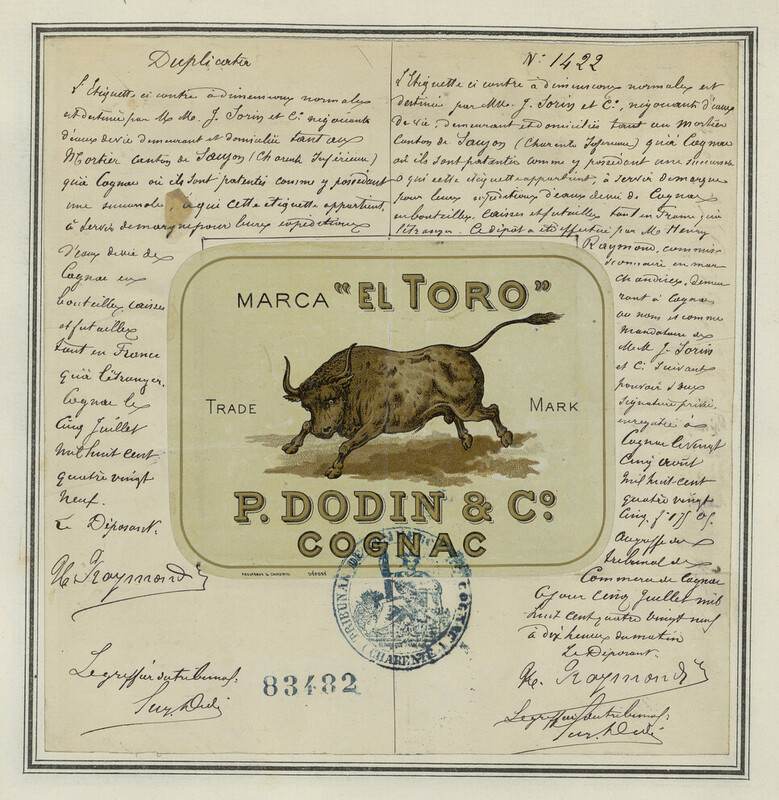 Duplicata
L'Etiquette ci contre à dimensions normales
est destinée par M M. J. Sorin et Cie négociants
d'eaux de vie demeurant et domiciliés tant au
Mortier canton de Saujon (Charente Inférieure)
qu'à Cognac où ils sont patentés comme y possédant
une succursale, à qui cette étiquette appartient,
à servir de marque pour leurs expéditions
d'eaux de vie de
Cognac en
bouteilles, caisses
et futailles
tant en France
qu'à l'étranger.
Cognac le
Cinq Juillet
mil huit cent
quatre vingt
neuf.
Le Déposant.
H. Raymond
Le greffier du tribunal
No 1422
L'Etiquette ci contre à dimensions normales est
destinée par MM. J. Sorin et Cie, négociants d'eaux
de vie, demeurant et domiciliés tant au Mortier
Canton de Saujon (Charente Inferieure) qu'à Cognac
où ils sont patentés comme y possédant une succursale
à qui cette étiquette appartient, à servir de marque
pour leurs expéditions d'eaux de vie de Cognac
en bouteilles, caisses et futailles tant en France qu'à
l'étranger. Ce dépôt a été effectué par Mr Henry
Raymond, commis
sionnaire en mar
chandises, demeu
rant à Cognac
au nom et comme
mandataire de
M.M. J. Sorin
et Cie suivant
pouvoir sous
signature privée,
enregistré à
Cognac le vingt
cinq août
mil huit cent
quatre vingt
cinq,
Au greffe du
tribunal de
Commerce de Cognac
ce jour cinq Juillet mil
huit cent quatre vingt neuf
à dix heures du matin
Le Déposant.
H. Raymond
Le greffier du tribunal
MARCA "EL TORO"
TRADE MARK
P. DODIN & Co.
COGNAC
DÉPOSÉ
TRIBUNAL DE COGNAC
(CHARENTE)
83482